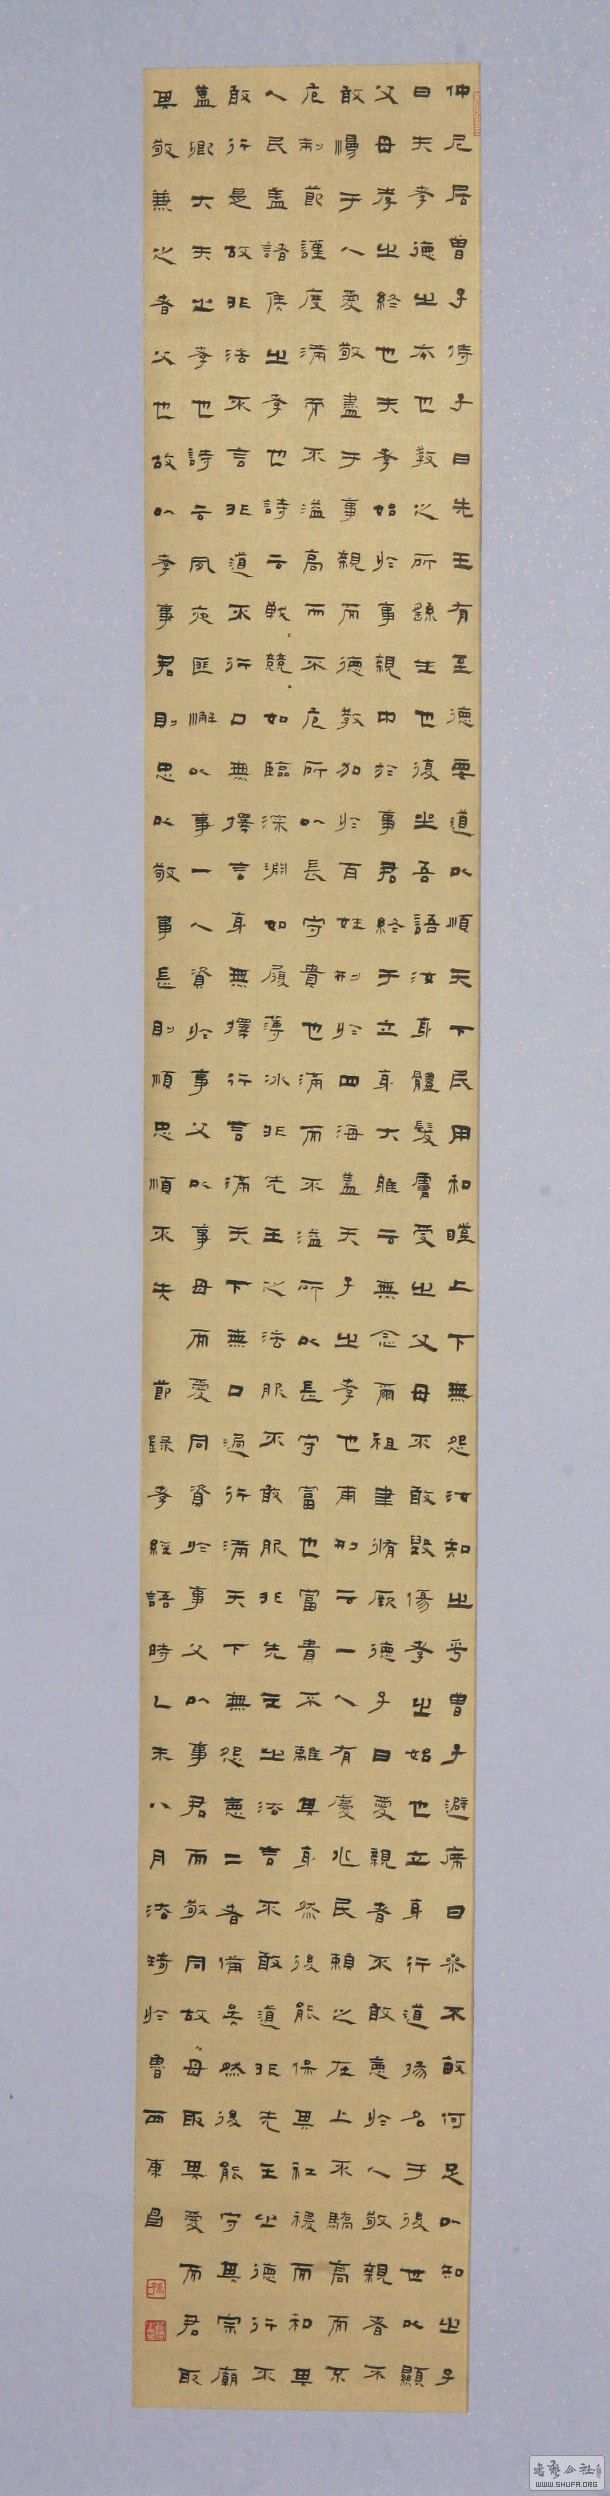 仲尼居曾子侍子曰先王有至德要道以順天下民用和睦上下無怨汝知之乎曾子避席曰參不敏何足以知之子
曰夫孝德之本也教之所繇生也復坐吾語汝身體髮膚受之父母不敢毀傷孝之始也立身行道揚名于後世以顯
父母孝之終也夫孝始於事親中於事君終于立身大雅云無念爾祖聿脩厥德子曰愛親者不敢惡於人敬親者不
敢慢于人愛敬盡于事親而德教加於百姓刑於四海蓋天子之孝也甫刑云一人有慶兆民賴之在上不驕高而不
危制節謹度滿而不溢高而不危所以長守貴也滿而不溢所以長守富也富貴不離其身然後能保其社稷而和其
人民蓋諸侯之孝也詩云戰〻競〻如臨深淵如履薄冰非先王之法服不敢服非先王之法言不敢道非先王之德行不
敢行是故非法不言非道不行口無擇言身無擇行言滿天下無口過行滿天下無怨惡二者備矣然後能守其宗廟
蓋卿大夫之孝也詩云夙夜匪懈以事一人資於事父以事母而愛同資於事父以事君而敬同故母取其愛而君取
其敬兼之者父也故以孝事君則忠以敬事長則順忠順不失 節錄孝經語時乙未八月法琦於魯西東昌
WWW.SHUFA.ORG